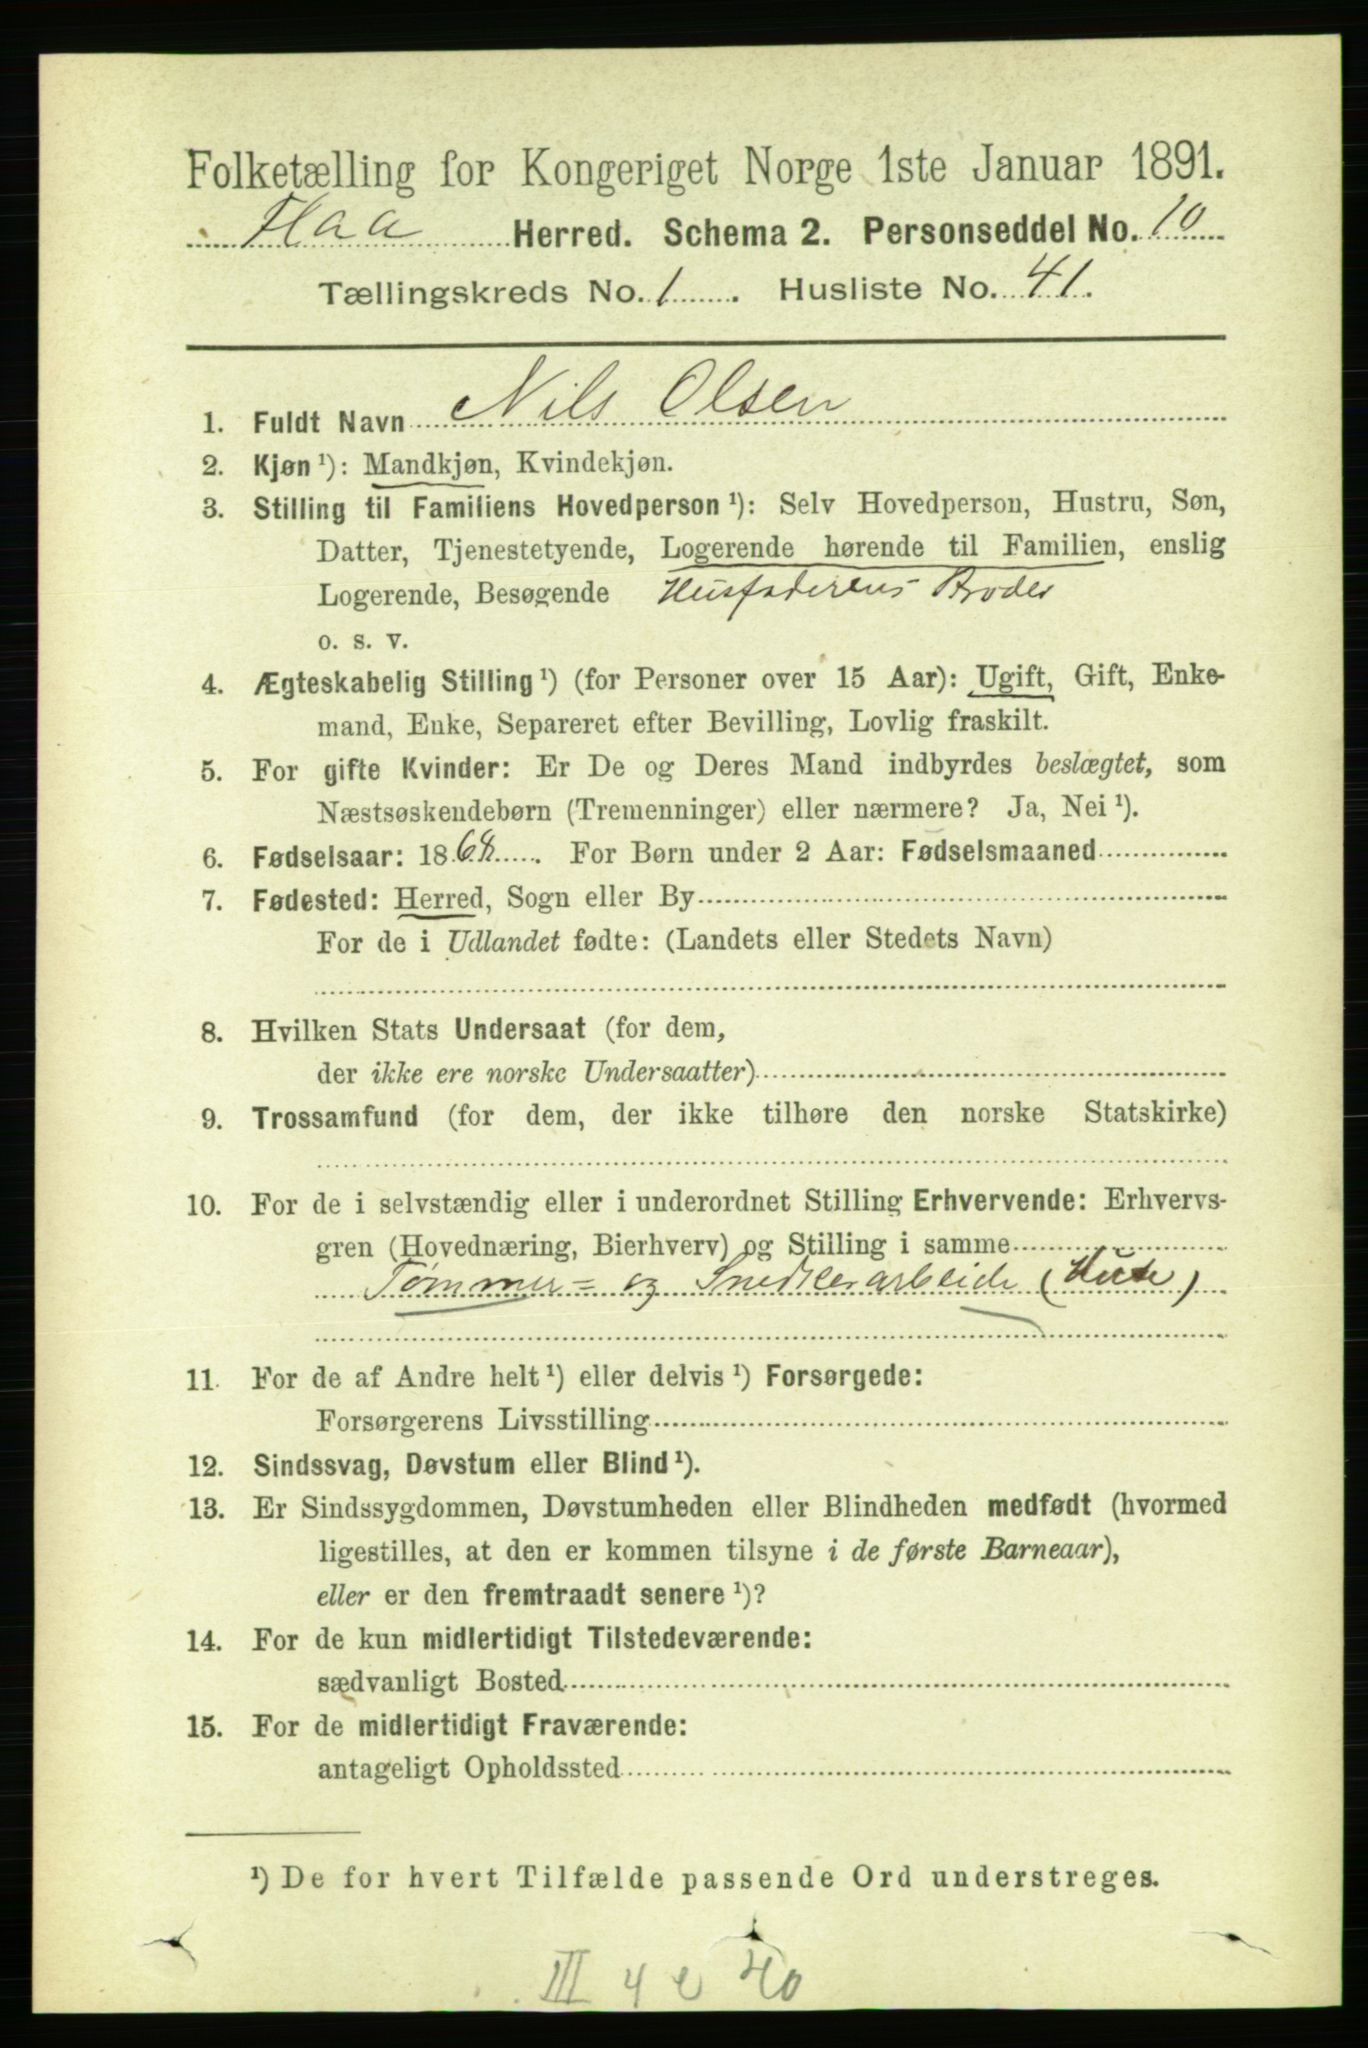 Folketælling for Kongeriget Norge 1ste Januar 1891.
Flaa Herred. Schema 2. Personseddel No. 10
Tællingskreds No. 1. Husliste No. 41.
1. Fuldt Navn Nils Olsen
2. Kjøn ¹): Mandkjøn, Kvindekjøn.
3. Stilling til Familiens Hovedperson ¹): Selv Hovedperson, Hustru, Søn,
Datter, Tjenestetyende, Logerende hørende til Familien, enslig
Logerende, Besøgende Husfaderens Broder
o. s. v.
4. Ægteskabelig Stilling ¹) (for Personer over 15 Aar): Ugift, Gift, Enke-
mand, Enke, Separeret efter Bevilling, Lovlig fraskilt.
5. For gifte Kvinder: Er De og Deres Mand indbyrdes beslægtet, som
Næstsøskendebørn (Tremenninger) eller nærmere? Ja, Nei ¹).
6. Fødselsaar: 1868. For Børn under 2 Aar: Fødselsmaaned
7. Fødested: Herred, Sogn eller By
For de i Udlandet fødte: (Landets eller Stedets Navn)
8. Hvilken Stats Undersaat (for dem,
der ikke ere norske Undersaatter)
9. Trossamfund (for dem, der ikke tilhøre den norske Statskirke)
10. For de i selvstændig eller i underordnet Stilling Erhvervende: Erhvervs-
gren (Hovednæring, Bierhverv) og Stilling i samme
Tømmer= og Snedkerarbeide
11. For de af Andre helt ¹) eller delvis ¹) Forsørgede:
Forsørgerens Livsstilling
12. Sindssvag, Døvstum eller Blind ¹).
13. Er Sindssygdommen, Døvstumheden eller Blindheden medfødt (hvormed
ligestilles, at den er kommen tilsyne i de første Barneaar),
eller er den fremtraadt senere ¹)?
14. For de kun midlertidigt Tilstedeværende:
sædvanligt Bosted
15. For de midlertidigt Fraværende:
antageligt Opholdssted
¹) De for hvert Tilfælde passende Ord understreges.
III 4 e 40